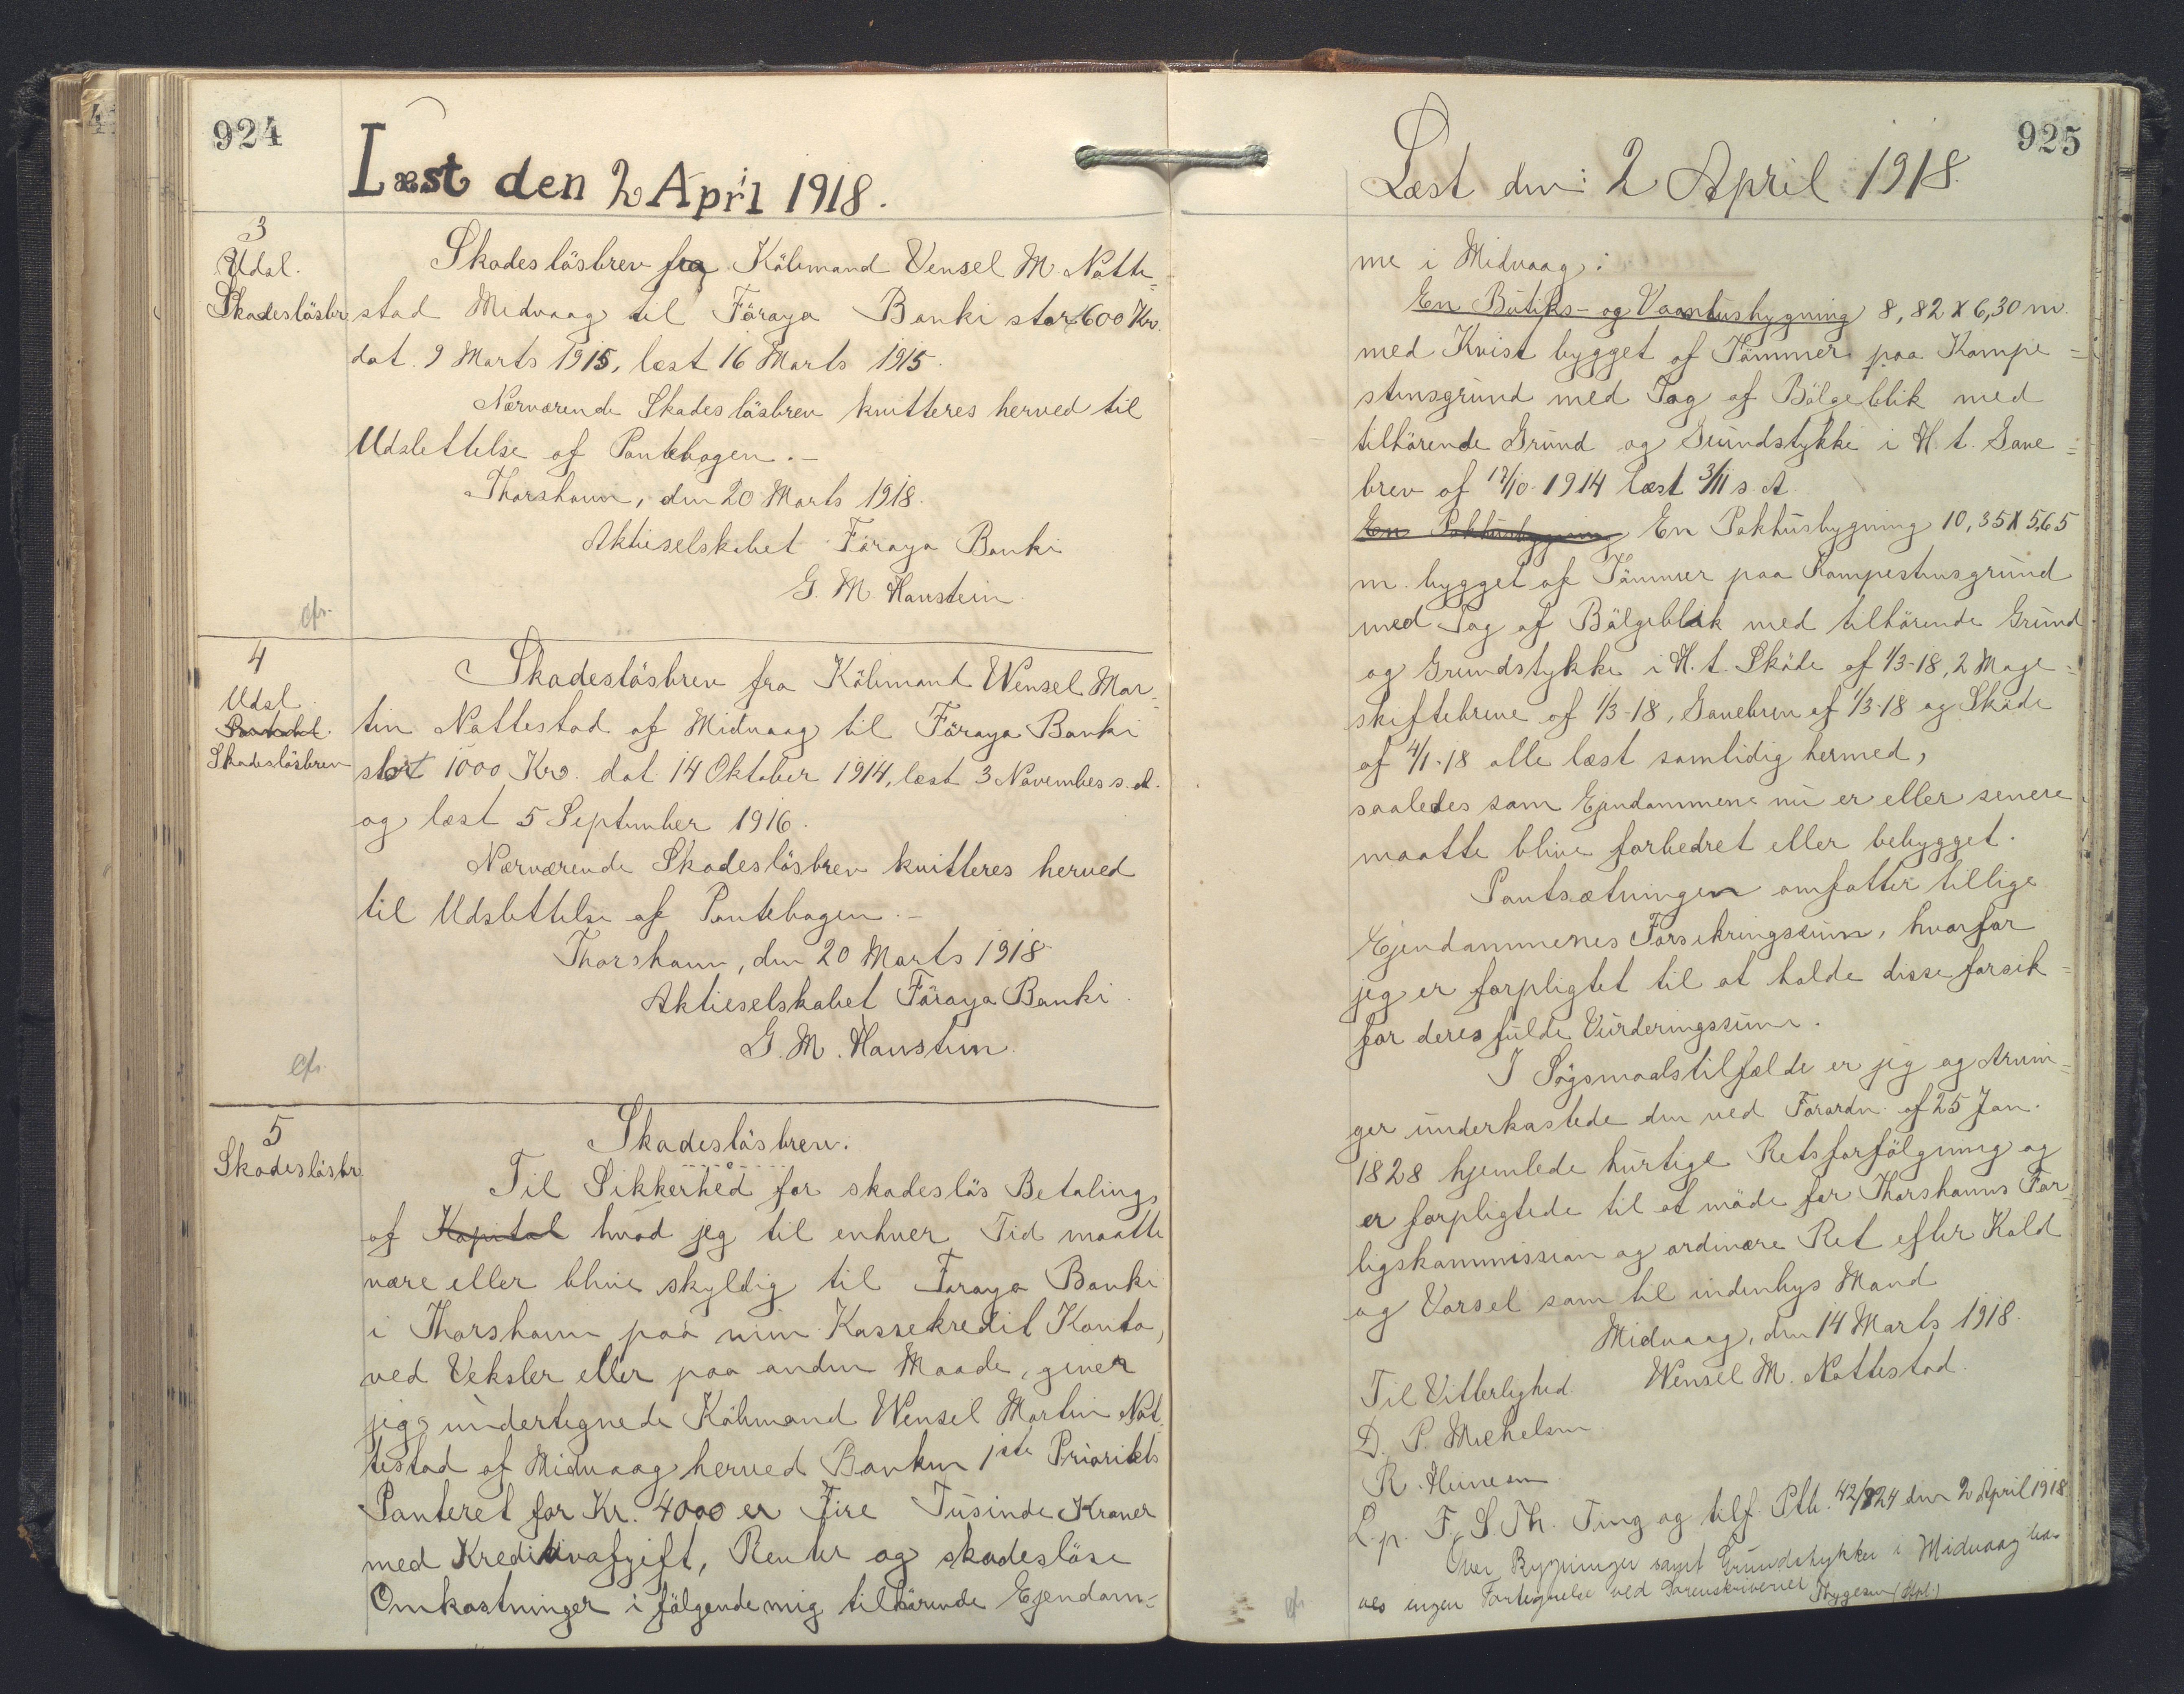 924
Læst den 2 April 1918.
3
Udsl.
Skadesløsbr
Skadesløsbrev fra Købmand Vensel M. Natte=
stad Midvaag til Föroya Banki stor 600 Kr.
dat. 9 Marts 1915, læst 16 Marts 1915.
Nærværende Skadesløsbrev kvitteres herved til
Udslettelse af Pantebogen.-
Thorshavn, den 20 Marts 1918.
Aktieselskabet Föroya Banki
G. M. Haustein.
cfr.
4
Udsl.
Skadesløsbrev
Skadesløsbrev fra Købmand Wensel Mar=
tin Nattestad af Midvaag til Föroya Banki
stort 1000 Kr. dat. 14 Oktober 1914, læst 3 November s. A.
og læst 5 September 1916.
Nærværende Skadesløsbrev kvitteres herved
til Udslettelse af Pantebogen.-
Thorshavn, den 20 Marts 1918
Aktieselskabet Föroya Banki.
G. M. Haustein.
cfr.
5
Skadesløsbr.
Skadesløsbrev.
Til Sikkerhed for skadesløs Betaling
af Kapital hvad jeg til enhver Tid maatte
være eller blive skyldig til Föroya Banki
i Thorshavn paa min Kassekredit Konto,
ved Veksler eller paa anden Maade, giver
jeg undertegnede Købmand Wensel Martin Nat=
testad af Midvaag herved Banken 1ste Prioritets
Panteret for Kr. 4000 er Fire Tusinde Kroner
med Kreditivafgift, Renter og skadesløse
Omkostninger i følgende mig tilhørende Ejendom=
925
Læst den: 2 April 1918.
me i Midvaag:
En Butiks- og Vaanhusbygning 8,82 X 6,30 m.
med Kvist bygget af Tømmer paa Kampe=
stensgrund med Tag af Bølgeblik med
tilhørende Grund og Grundstykke i H. t. Gave=
brev af 12/10-1914 læst 3/11 s. A.
En Pakhusbygning En Pakhusbygning 10,35 X 5,65
m. bygget af Tømmer paa Kampestensgrund
med Tag af Bølgeblik med tilhørende Grund
og Grundstykke i H. t. Skøde af 1/3-18, 2 Mage=
skiftebreve af 1/3-18, Gavebrev af 1/3-18 og Skøde
af 4/1-18 alle læst samtidig hermed,
saaledes som Ejendommene nu er eller senere
maatte blive forbedret eller bebygget.
Pantsætningen omfatter tillige
Ejendommenes Forsikringssum, hvorfor
jeg er forpligtet til at holde disse forsik=
for deres fulde Vurderingssum.
I Søgsmaalstilfælde er jeg og Arvin=
ger underkastede den ved Forordn. af 25 Jan.
1828 hjemlede hurtige Retsforfølgning og
er forpligtede til at møde for Thorshavns For=
ligskommission og ordinære Ret efter Kald
og Varsel som til indenbys Mand
Midvaag, den 14 Marts 1918.
Til Vitterlighed Wensel M. Nattestad.
D. P. Michelsen
R. Heinesen
L. p. F. S. Th. Ting og tilf. Ptb. 42/824 den 2 April 1918.
Over Bygninger samt Grundstykker i Midvaag ha=
ves ingen Fortegnelse ved Sorenskriveriet Thygesen (Cst.)
cfr.